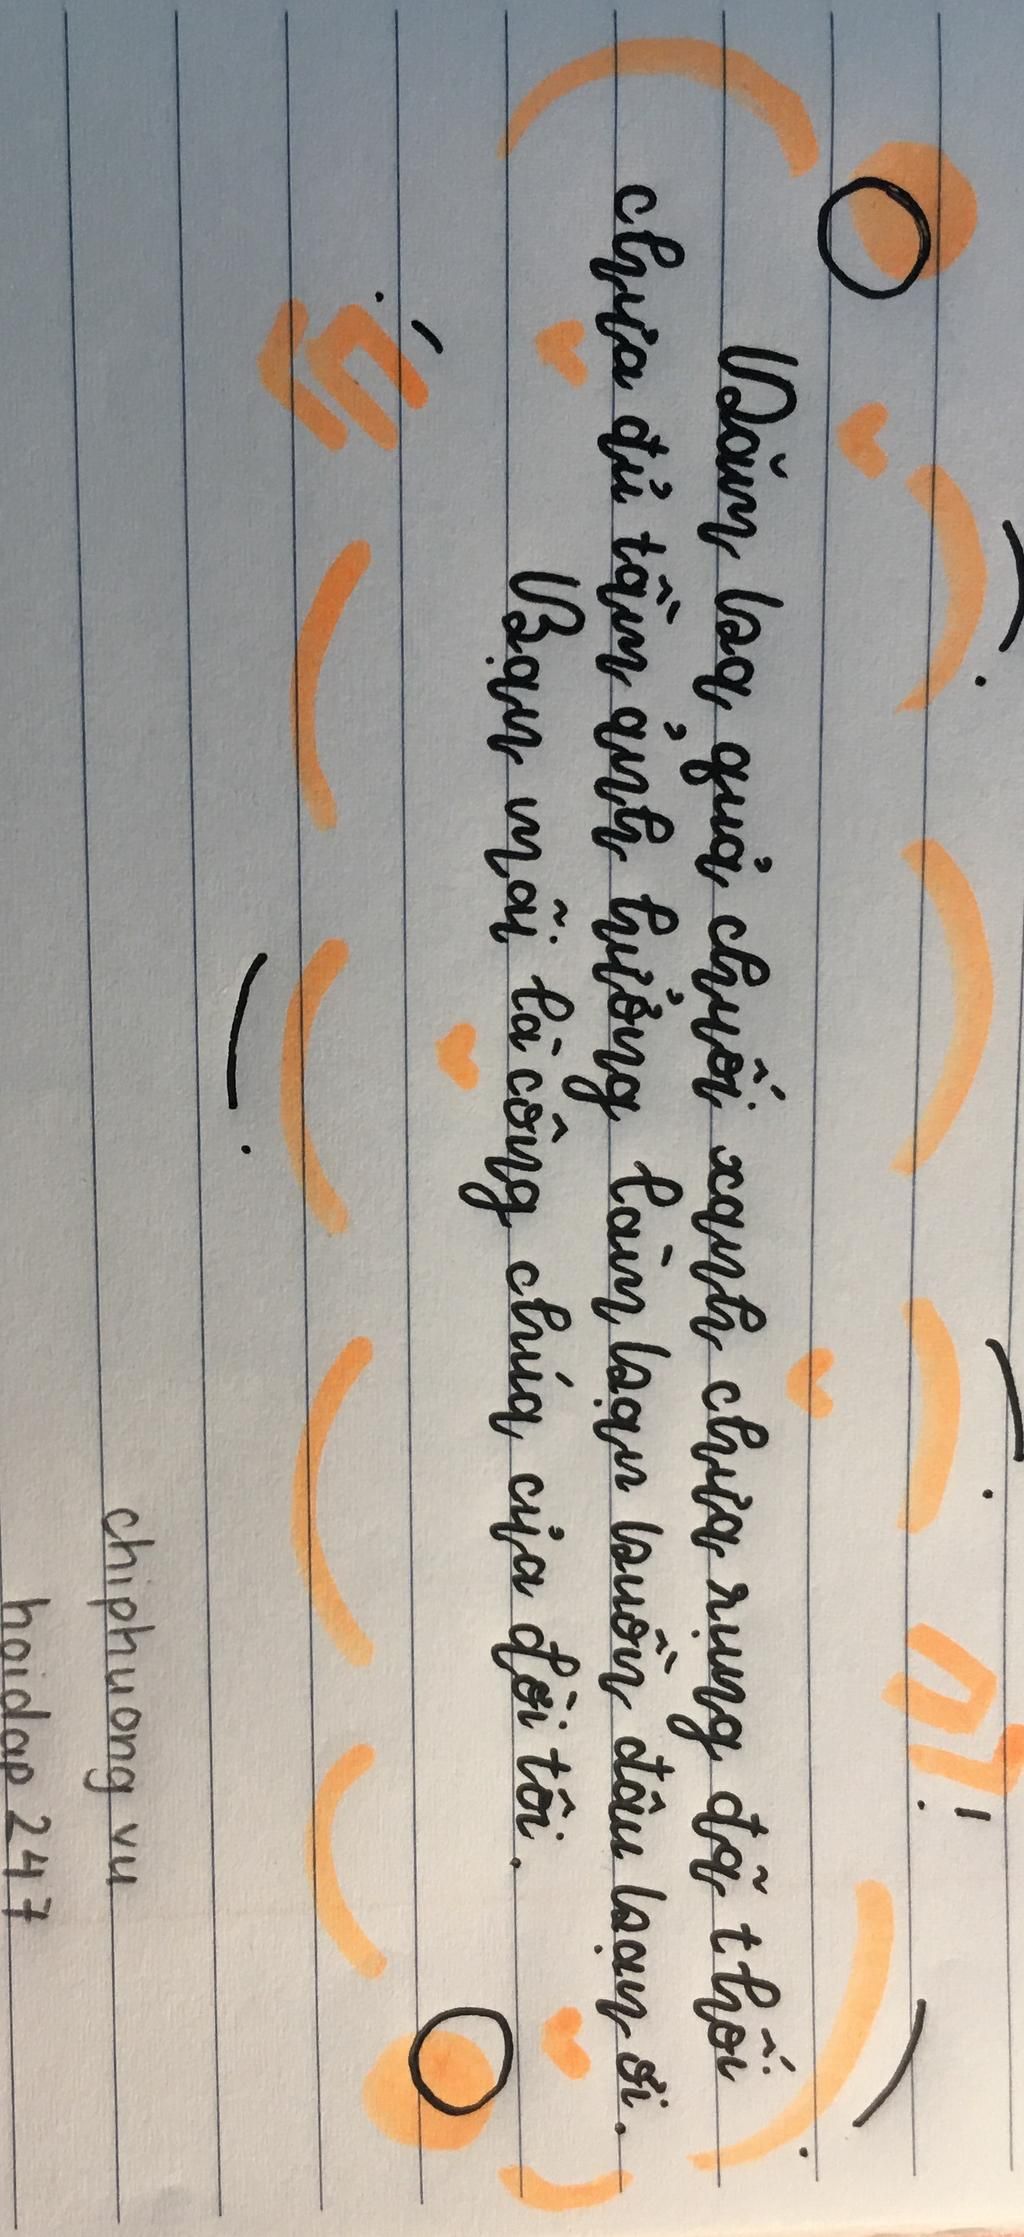 Dăm ba quả chuối xanh chưa rụng đã thối
chưa đủ tầm ảnh hưởng làm bạn buồn đâu bạn ơi.
Bạn mãi là công chúa của đời tôi.
chiphuong vu
hoidap 247